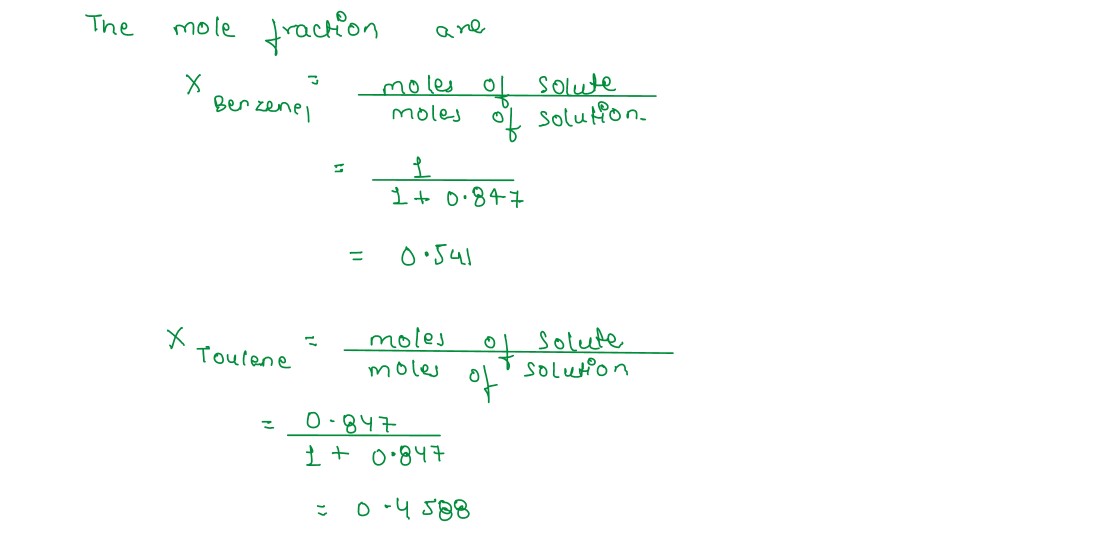 The mole fraction are
X Benzene, = moles of solute
moles of solution.
= 1
1 + 0.847
= 0.541
X Toulene = moles of solute
moles of solution
= 0.847
1 + 0.847
= 0.4588